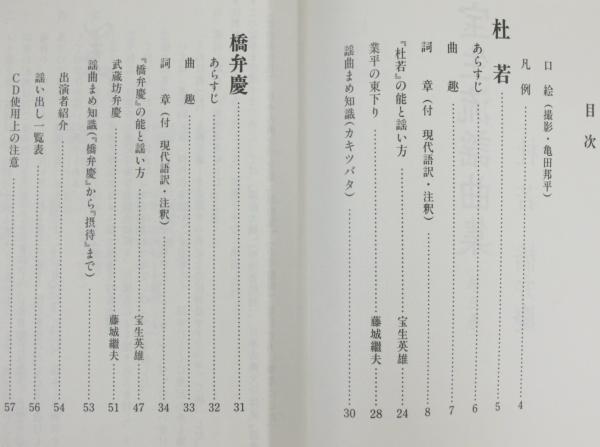 目次
口絵(撮影・亀田邦平)
凡例……4
杜若……5
あらすじ……6
曲趣……7
詞章(付 現代語訳・注釈)……8
『杜若』の能と謡い方……宝生英雄 24
業平の東下り……藤城繼夫 28
謡曲まめ知識(カキツバタ)……30
橋弁慶……31
あらすじ……32
曲趣……33
詞章(付 現代語訳・注釈)……34
『橋弁慶』の能と謡い方……宝生英雄 47
武蔵坊弁慶……藤城繼夫 51
謡曲まめ知識(『橋弁慶』から『摂待』まで)……53
出演者紹介……54
謡い出し一覧表……56
CD使用上の注意……57